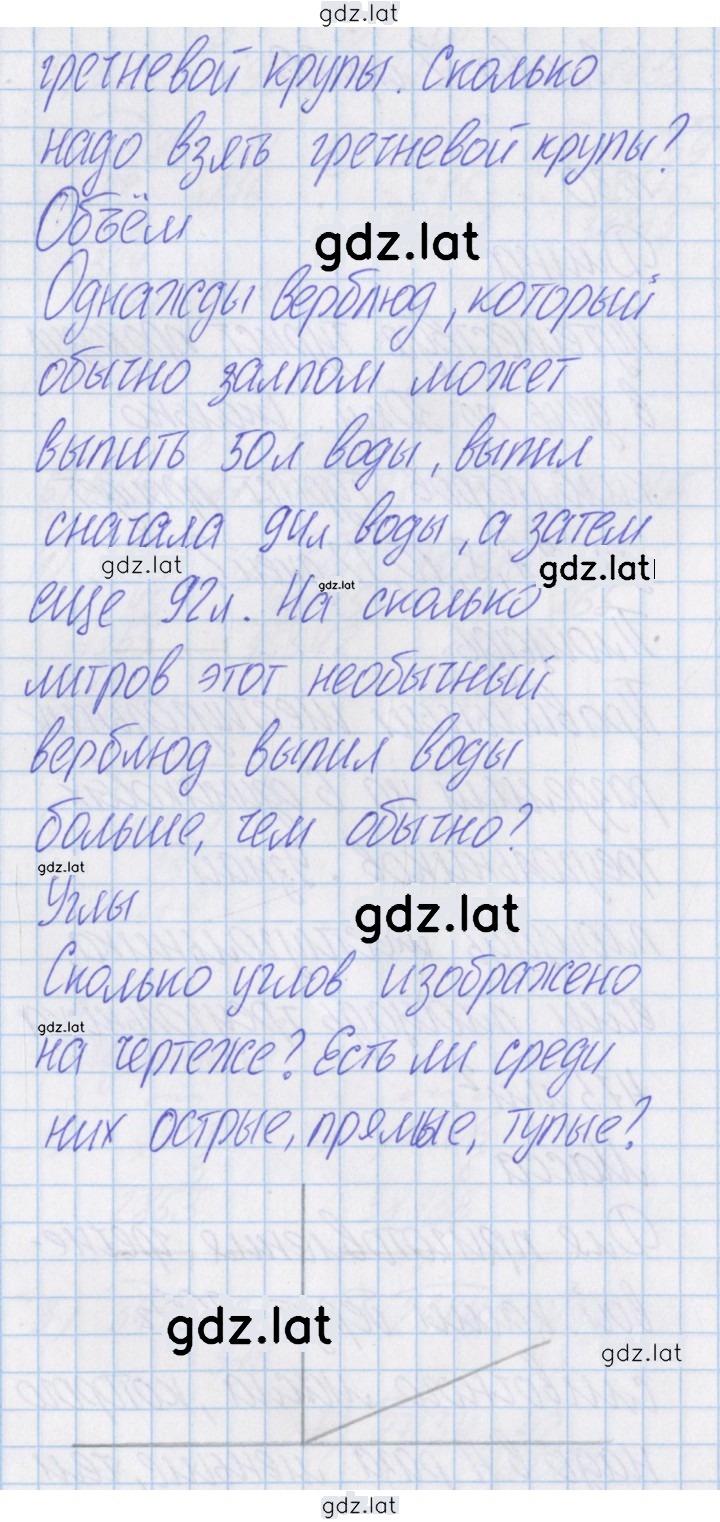 gdz.lat
гречневой крупы. Сколько
надо взять гречневой крупы?
Объём
gdz.lat
Однажды верблюд, который
обычно залпом может
выпить 50л воды, выпил
сначала 94л воды, а затем
gdz.lat
gdz.lat
gdz.lat
еще 92л. На сколько
литров этот необычный
верблюд выпил воды
больше, чем обычно?
gdz.lat
Углы
gdz.lat
Сколько углов изображено
gdz.lat
на чертеже? Есть ли среди
них острые, прямые, тупые?
gdz.lat
gdz.lat
gdz.lat